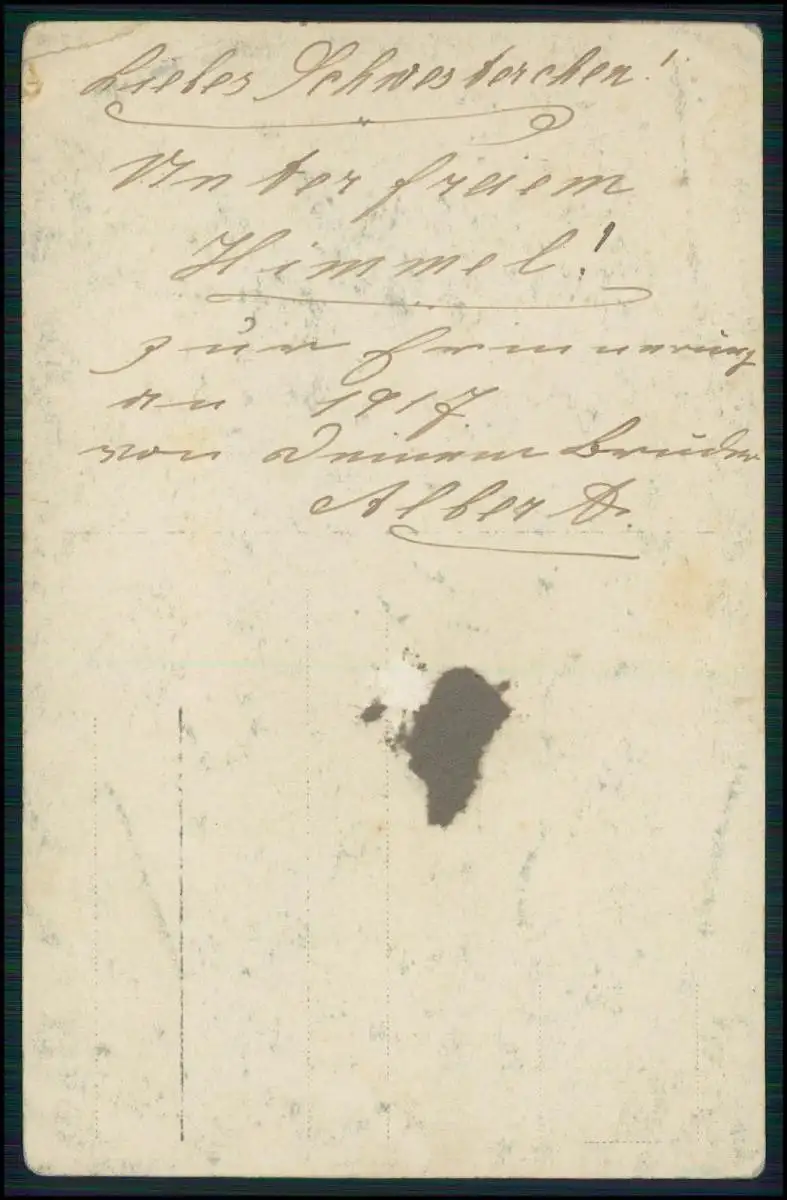 Liebes Schwesterchen!
Unter freiem
Himmel!
Zur Erinnerung
an 1917.
von Deinem Bruder
Albert.